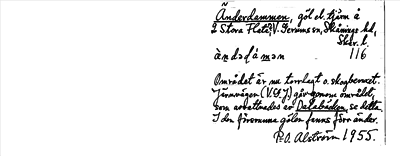 Änderdammen, göl el. tjärn å
2 Stora Flate, V. Gerums sn, Skånings hd,
Skar. l.
àndədàmən 116
Området är nu torrlagt o. skogbevuxet.
Järnvägen (V.G.J.) går genom området,
som avvattnades av Dalabäcken, se detta.
I den försvunna gölen fanns förr änder.
P.O. Alström 1955.